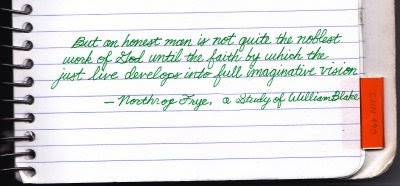 But an honest man is not quite the noblest
work of God until the faith by which the
just live develops into full imaginative vision
— Northrop Frye, a Study of William Blake